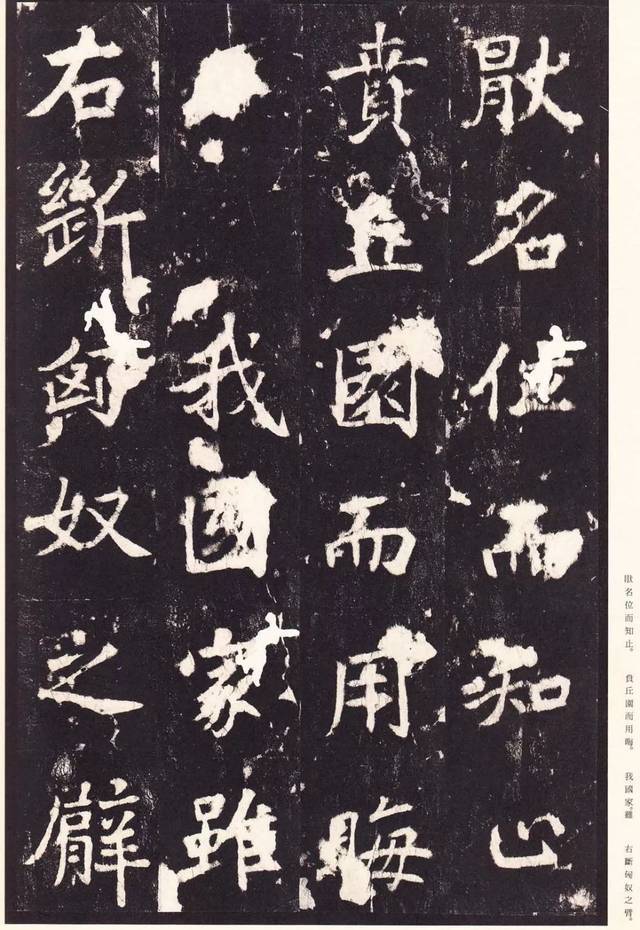 猒名位而知止
賁丘園而用晦
我國家雖
右斷匈奴之臂
猒名位而知止。　賁丘園而用晦。　我國家。雖　右斷匈奴之臂。